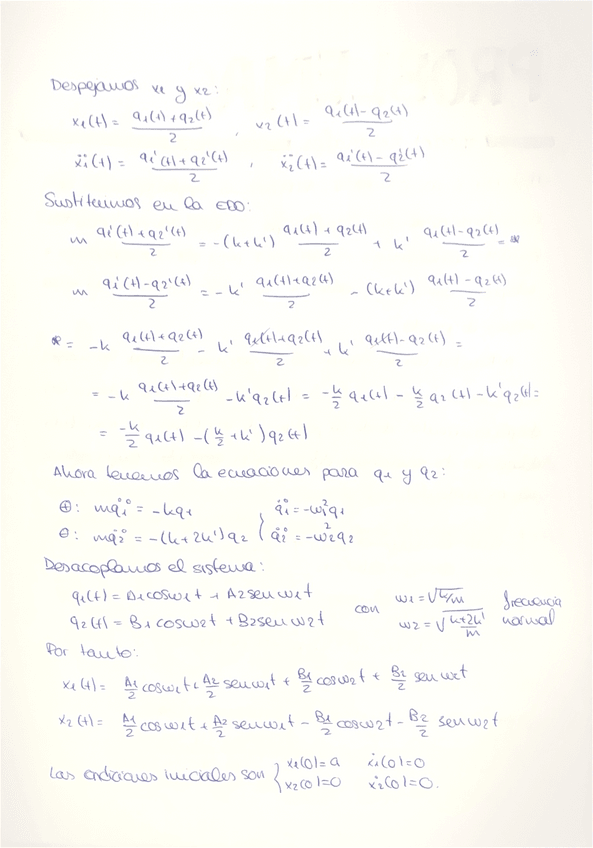 Despejamos x1 y x2:
x1(t) = (q1(t)+q2(t))/2 , x2(t) = (q1(t)-q2(t))/2
ẍ1(t) = (q̈1(t)+q̈2(t))/2 , ẍ2(t) = (q̈1(t)-q̈2(t))/2
Sustituimos en la EDO:
m (q̈1(t)+q̈2(t))/2 = -(k+k') (q1(t)+q2(t))/2 + k' (q1(t)-q2(t))/2 = *
m (q̈1(t)-q̈2(t))/2 = -k' (q1(t)+q2(t))/2 - (k+k') (q1(t)-q2(t))/2
* = -k (q1(t)+q2(t))/2 - k' (q1(t)+q2(t))/2 + k' (q1(t)-q2(t))/2 =
= -k (q1(t)+q2(t))/2 - k'q2(t) = -k/2 q1(t) - k/2 q2(t) - k'q2(t) =
= -k/2 q1(t) - (k/2 + k') q2(t)
Ahora tenemos la ecuaciones para q1 y q2:
⊕: mq̈1 = -kq1 } q̈1 = -ω1²q1
⊖: mq̈2 = -(k+2k')q2 } q̈2 = -ω2²q2
Desacoplamos el sistema:
q1(t) = A1cosω1t + A2senω1t con ω1 = √(k/m) frecuencia
q2(t) = B1cosω2t + B2senω2t ω2 = √((k+2k')/m) normal
Por tanto:
x1(t) = A1/2 cosω1t + A2/2 senω1t + B1/2 cosω2t + B2/2 senω2t
x2(t) = A1/2 cosω1t + A2/2 senω1t - B1/2 cosω2t - B2/2 senω2t
Las condiciones iniciales son { x1(0)=a ẋ1(0)=0
x2(0)=0 ẋ2(0)=0.